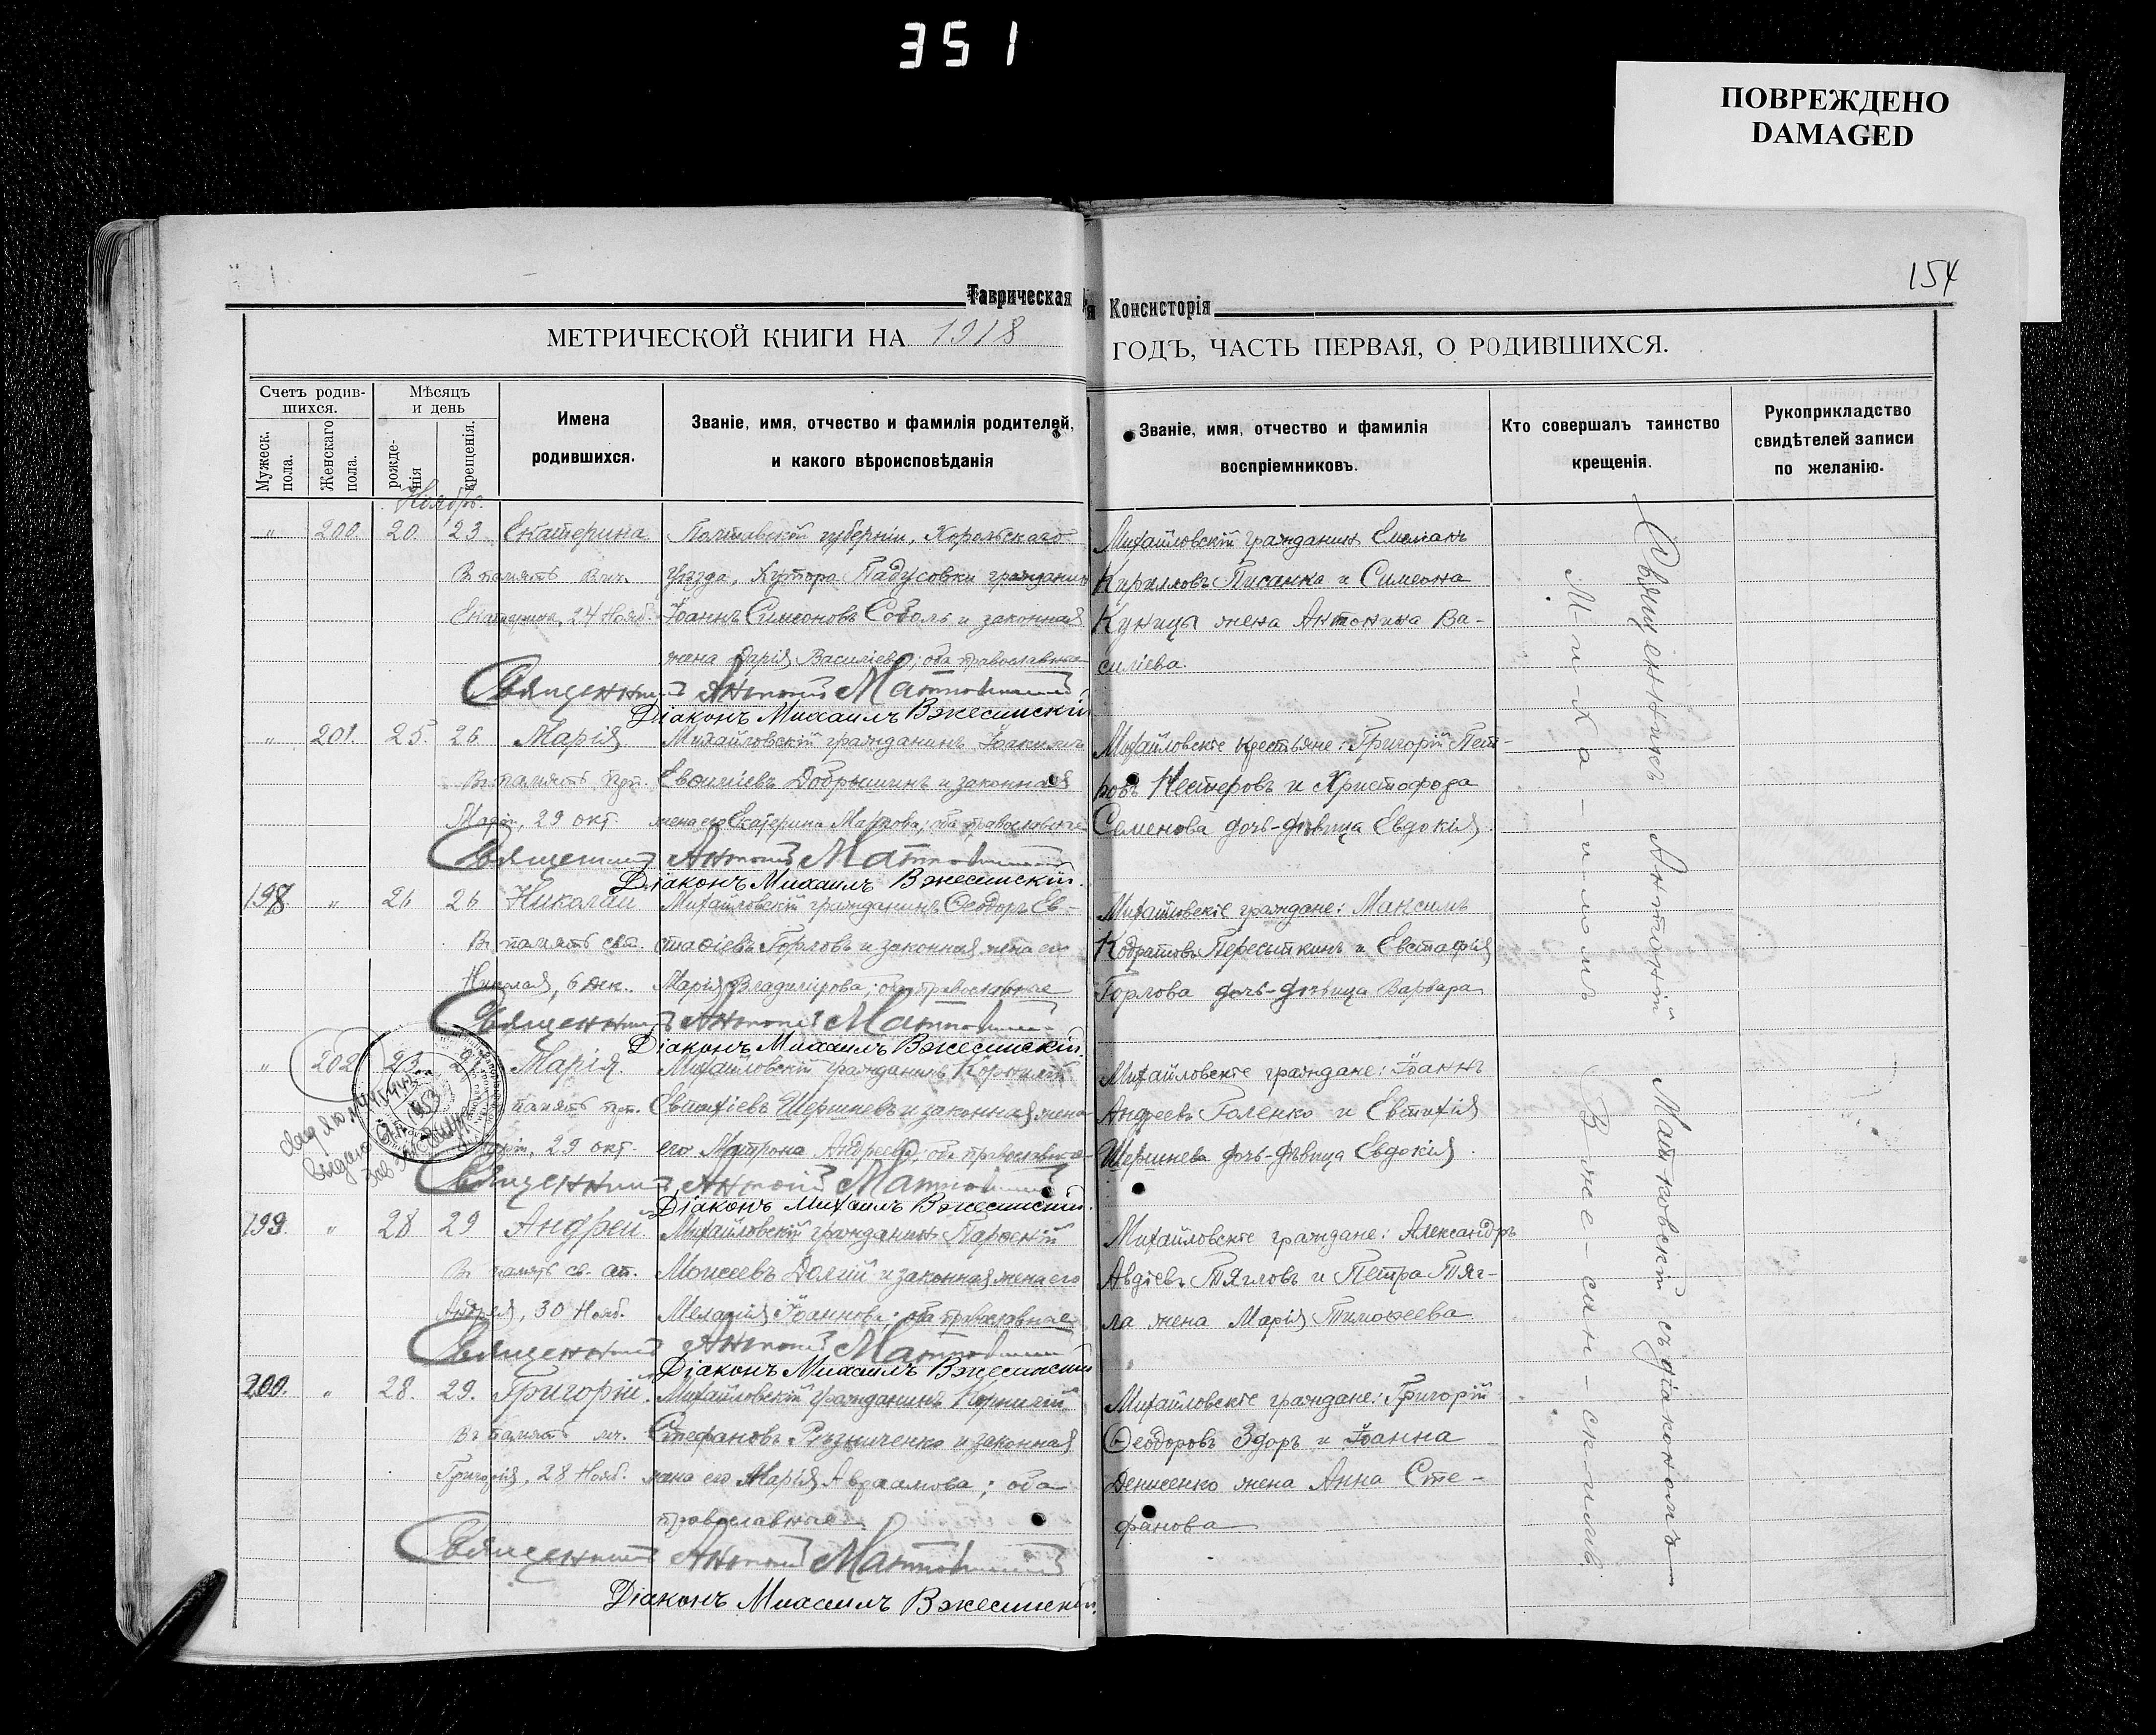 351
ПОВРЕЖДЕНО
DAMAGED
154
Таврическая
Консисторія
МЕТРИЧЕСКОЙ КНИГИ НА 1918
ГОДЪ, ЧАСТЬ ПЕРВАЯ, О РОДИВШИХСЯ.
Счетъ родив-
шихся.
Мужеск.
пола.
Женскаго
пола.
Мѣсяцъ
и день
рожде-
нія
крещенія.
Имена
родившихся.
Званіе, имя, отчество и фамилія родителей,
и какого вѣроисповѣданія
Званіе, имя, отчество и фамилія
воспріемниковъ.
Кто совершалъ таинство
крещенія.
Рукоприкладство
свидѣтелей записи
по желанію.
Ноябрь.
" 200. 20. 23 Екатерина Полтавской губерніи, Хорольскаго
Въ память Вмч. уѣзда, Хутора Падусовки гражданин
Екатерины, 24 Нояб. Іоаннъ Симеоновъ Соболь и законная
жена Дарія Василіева; оба православные
Михайловскій гражданинъ Емеліанъ
Кирилловъ Писанка и Симеона
Куницы жена Антонина Ва-
силіева.
Священникъ Антоній Матковскій
Діаконъ Михаилъ Вжесинскій
" 201. 25. 26 Марія Михайловскій гражданинъ Іоакимъ
Въ память прп. Евфиміевъ Добрышинъ и законная
Маріи, 29 окт. жена его Екатерина Маркова; оба православные
Михайловскіе крестьяне: Григорій Пет-
ровъ Нестеровъ и Христофора
Семенова дочь-дѣвица Евдокія.
Священникъ Антоній Матковскій
Діаконъ Михаилъ Вжесинскій.
198. " 26 26 Николай Михайловскій гражданинъ Ѳеодоръ Ев-
Въ память свт. стаѳіевъ Горловъ и законная жена его
Николая, 6 дек. Марія Владимірова; оба православные
Михайловскіе граждане: Максимъ
Кодратовъ Пересыпкинъ и Евстафія
Горлова дочь-дѣвица Варвара
Священникъ Антоній Матковскій
Діаконъ Михаилъ Вжесинскій.
" 202 23 Марія. Михайловскій гражданинъ Корнилій
память прп. Евтихіевъ Шершневъ и законная жена
29 окт. его Матрона Андреева; оба православные
Михайловскіе граждане: Іоаннъ
Андреевъ Голенко и Евтихія
Шершнева дочь-дѣвица Евдокія.
Священникъ Антоній Матковскій
Діаконъ Михаилъ Вжесинскій.
199. " 28 29 Андрей. Михайловскій гражданинъ Парѳеній
Въ память св. ап. Моисеевъ Долгій и законная жена его
Андрея, 30 Нояб. Меланія Іоаннова; оба православные
Михайловскіе граждане: Александръ
Авдіевъ Тягловъ и Петра Тяг-
ла жена Марія Тимоѳеева
Священникъ Антоній Матковскій
Діаконъ Михаилъ Вжесинскій
200. " 28. 29. Григорій. Михайловскій гражданинъ Корнилій
Въ память мч. Стефановъ Рѣзниченко и законная
Григорія, 28 Нояб. жена его Марія Авраамова; оба
православные
Михайловскіе граждане: Григорій
Ѳеодоровъ Здоръ и Іоанна
Денисенко жена Анна Сте-
фанова
Священникъ Антоній Матковскій
Діаконъ Михаилъ Вжесинскій.
Священникъ Антоній Матковскій съ діакономъ
М-и-ха-и-ломъ Вже-син-ск-имъ.